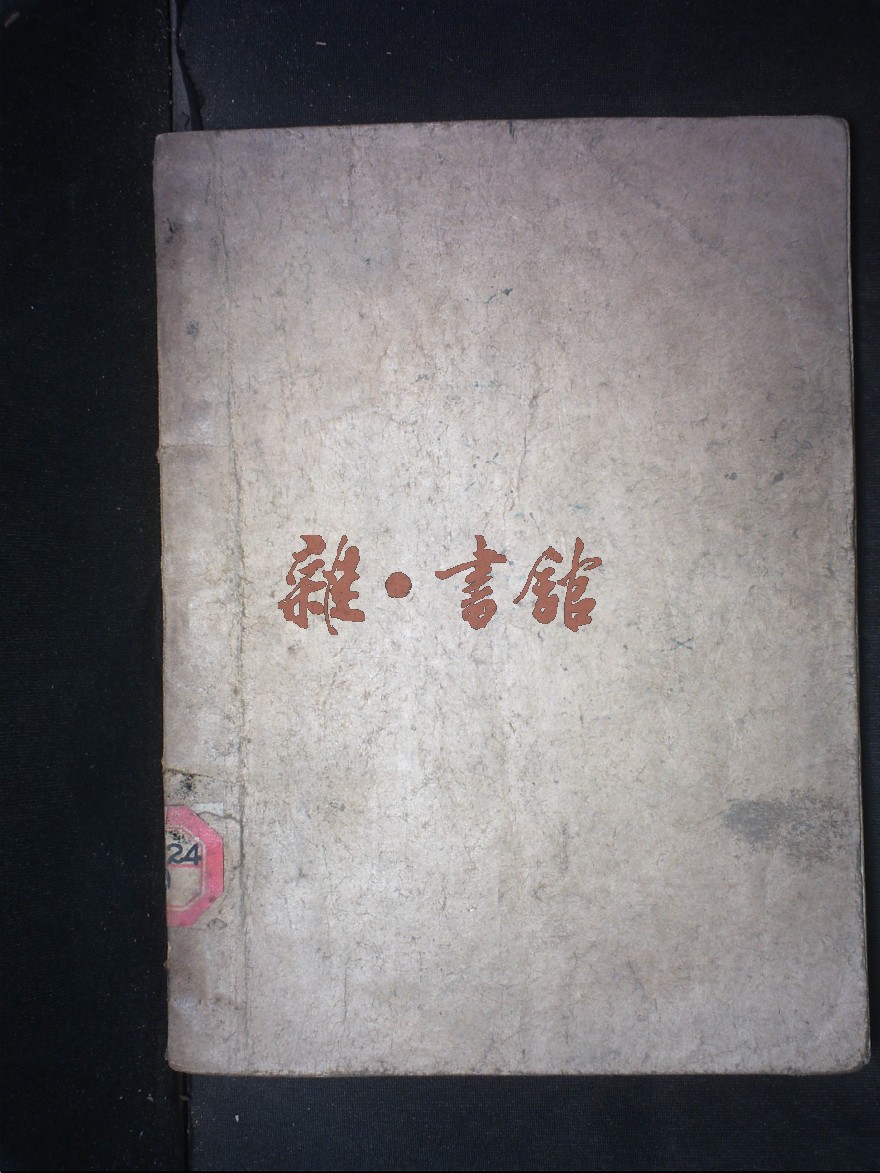 雜·書舘
24